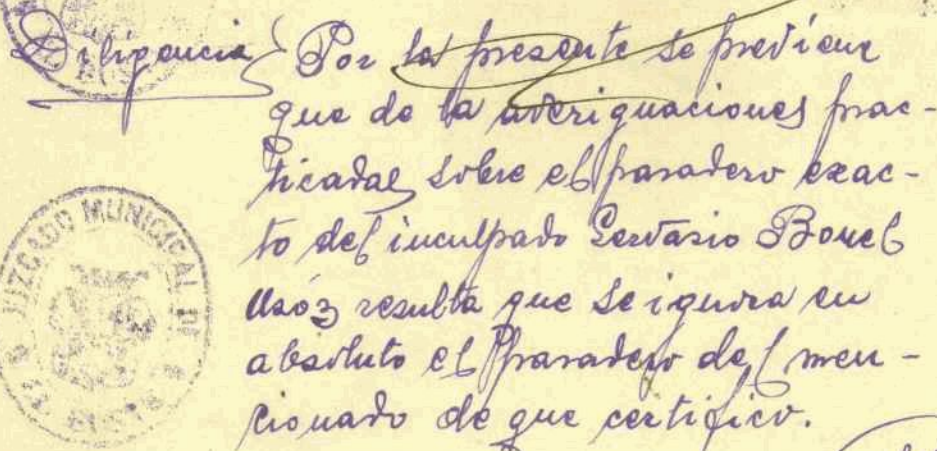 Diligencia } Por la presente se previene
que de la averiguaciones prac-
ticadas sobre el paradero exac-
to del inculpado Gervasio Bonel
Usóz resulta que se ignora en
absoluto el paradero del men-
cionado de que certifico.
JUZGADO MUNICIPAL DE